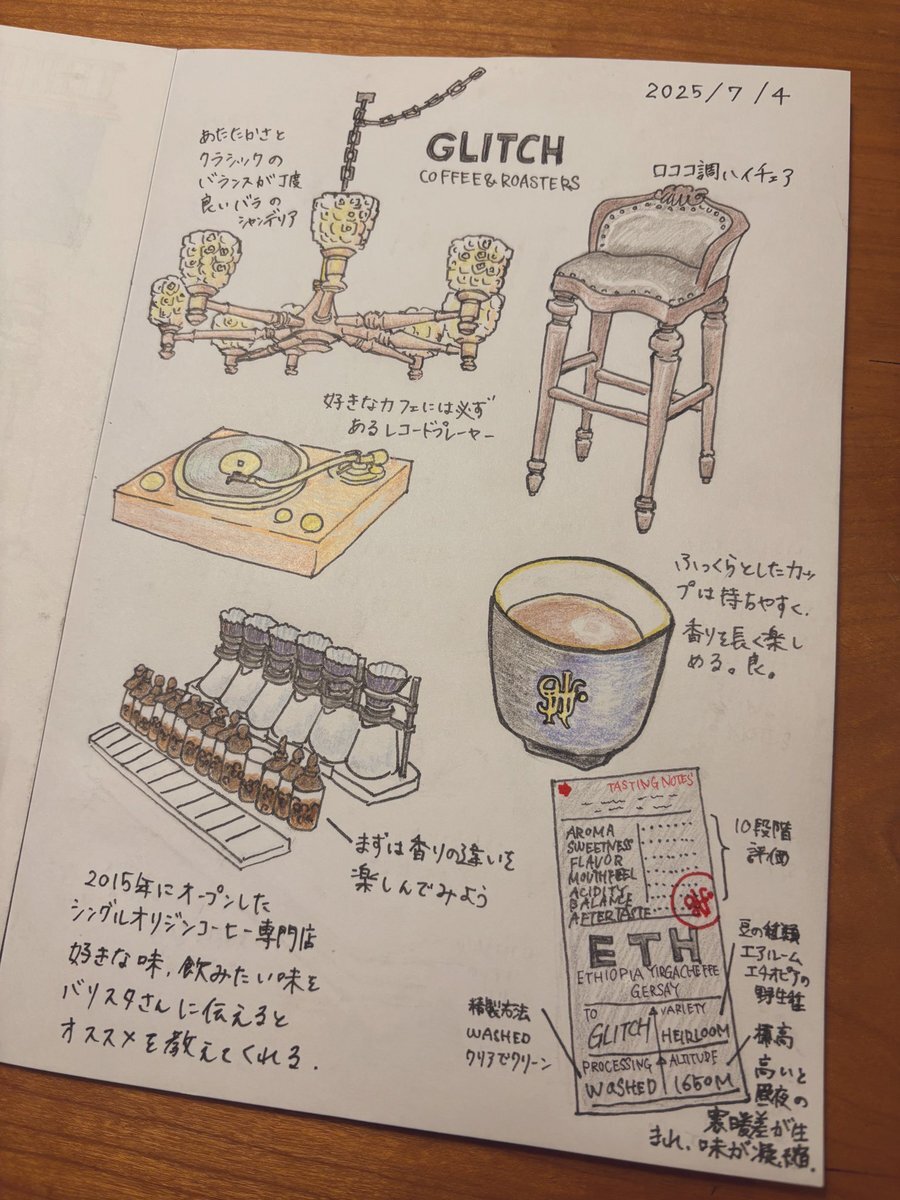 2025/7/4
GLITCH
COFFEE&ROASTERS
あたたかさと
クラシックの
バランスが丁度
良いバラの
シャンデリア
ロココ調ハイチェア
好きなカフェには必ず
あるレコードプレーヤー
ふっくらとしたカッ
プは持ちやすく、
香りを長く楽し
める。良。
まずは香りの違いを
楽しんでみよう
2015年にオープンした
シングルオリジンコーヒー専門店
好きな味、飲みたい味を
バリスタさんに伝えると
オススメを教えてくれる.
TASTING NOTES
AROMA
SWEETNESS
FLAVOR
MOUTHFEEL
ACIDITY
BALANCE
AFTERTASTE
10段階
評価
ETH
ETHIOPIA YIRGACHEFFE
GERSAY
TO
GLITCH
VARIETY
HEIRLOOM
PROCESSING
WASHED
ALTITUDE
1650M
豆の種類
エアルーム
エチオピアの
野生種
精製方法
WASHED
クリアでクリーン
標高
高いと
昼夜の
寒暖差が生
まれ、味が凝縮.